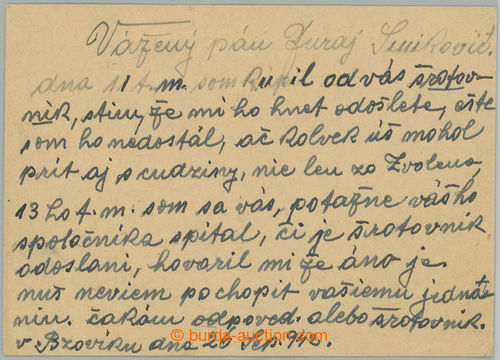 Vážený pán Juraj Smikovič
dna 11 t. m. som kúpil od vás šrotov-
ník, stim, že mi ho hneť odošlete, ešte
som ho nedostál, ač kolvek úš mohol
prít aj s cudziny, nie len zo Zvolena,
13 ho t. m. som sa vás, poťažne vášho
spoločníka spítal, či je šrotovník
odoslani, hovaril mi že áno je.
nuš neviem pochopit vašiemu jedná-
niu. čakám odpoveď. alebo šrotovník.
v Bzovíku dna 26 sep. 942.
burda-auction.com